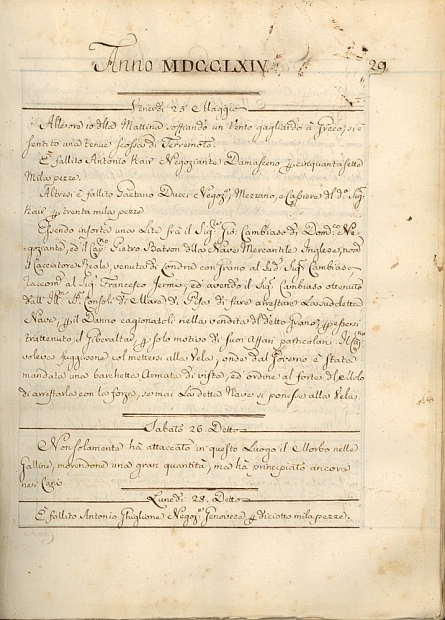 Anno MDCCLXIV.
29
Venerdì 25 Maggio
Alle ore 10 della Mattina soffiando un Vento gagliardo à Greco, si è
sentito una tenue scossa di Terremoto.
È fallito Antonio Kair Negoziante Damasceno p cinquantasette
Mila pezze.
Altresì è fallito Gaetano Ducci Negoz: Mezzano, e Cassiere del d:º Sig:
Kair p trenta mila pezze.
Essendo insorta una Lite frà il Sig: Gio: Cambiaso di Dom:co Ne-
goziante, ed il Cap: Pietro Batson della Nave Mercantile Inglese, nom:
il Cacciatore Reale, venuta di Londra con Grano al Sud: Sig: Cambiaso
Raccom: al Sig: Francesco Jermy, ed avendo il Sig: Cambiaso ottenuto
dall' Ill: SS: Consoli di Mare di Pisa di fare arrestare la sud:detta
Nave, p il Danno cagionatoli nella vendita del detto Grano, p essersi
trattenuto à Gibilterra, p solo motivo di suoi Affari particolari. Il Cap:no
voleva fuggirsene col mettersi alla Vela, onde dal Governo è stata
mandata una barchetta Armata di vista, ed ordine al forte del Molo
di arrestarla con la forza, se mai la detta Nave si ponesse alla Vela.
Sabato 26. Detto
Non solamente hà attaccato in questo Luogo il Morbo nelle
Galline, morendone una gran quantità, ma hà principiato ancora
nei Cani.
Lunedì 28. Detto
È fallito Antonio Ghiglione Negoz: Genovese p diciotto mila pezze.